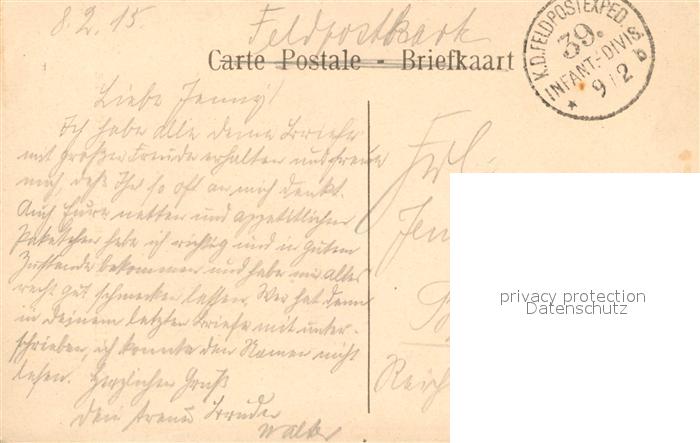 8.2.15.
Feldpostkarte
Carte Postale - Briefkaart
K.D.FELDPOSTEXPED.
39.
INFANT.-DIVIS.
* 9/2 b
Liebe Jenny!
Ich habe alle deine Briefe
mit großer Freude erhalten und freue
mich, daß Ihr so oft an mich denkt.
Auch Eure netten und appetitlichen
Paketchen habe ich richtig und in gutem
Zustande bekommen und habe mir alles
recht gut schmecken lassen. Wer hat denn
in Deinem letzten Briefe mit unter-
schrieben, ich konnte den Namen nicht
lesen. Herzlichen Gruß
Dein treuer Bruder
Walter
Frl.
Jen
Reich
privacy protection
Datenschutz